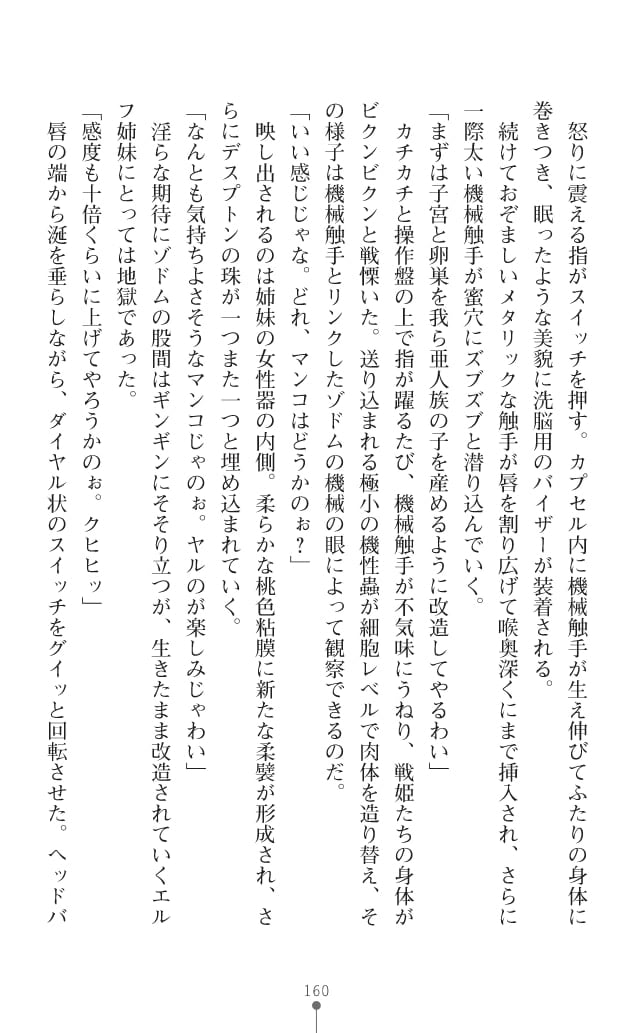 怒りに震える指がスイッチを押す。カプセル内に機械触手が生え伸びてふたりの身体に
巻きつき、眠ったような美貌に洗脳用のバイザーが装着される。
続けておぞましいメタリックな触手が唇を割り広げて喉奥深くにまで挿入され、さらに
一際太い機械触手が蜜穴にズブズブと潜り込んでいく。
「まずは子宮と卵巣を我ら亜人族の子を産めるように改造してやるわい」
カチカチと操作盤の上で指が躍るたび、機械触手が不気味にうねり、戦姫たちの身体が
ビクンビクンと戦慄いた。送り込まれる極小の機性蟲が細胞レベルで肉体を造り替え、そ
の様子は機械触手とリンクしたゾドムの機械の眼によって観察できるのだ。
「いい感じじゃな。どれ、マンコはどうかのぉ?」
映し出されるのは姉妹の女性器の内側。柔らかな桃色粘膜に新たな柔襞が形成され、さ
らにデスプトンの珠が一つまた一つと埋め込まれていく。
「なんとも気持ちよさそうなマンコじゃのぉ。ヤルのが楽しみじゃわい」
淫らな期待にゾドムの股間はギンギンにそそり立つが、生きたまま改造されていくエル
フ姉妹にとっては地獄であった。
「感度も十倍くらいに上げてやろうかのぉ。クヒヒッ」
唇の端から涎を垂らしながら、ダイヤル状のスイッチをグイッと回転させた。ヘッドバ
160